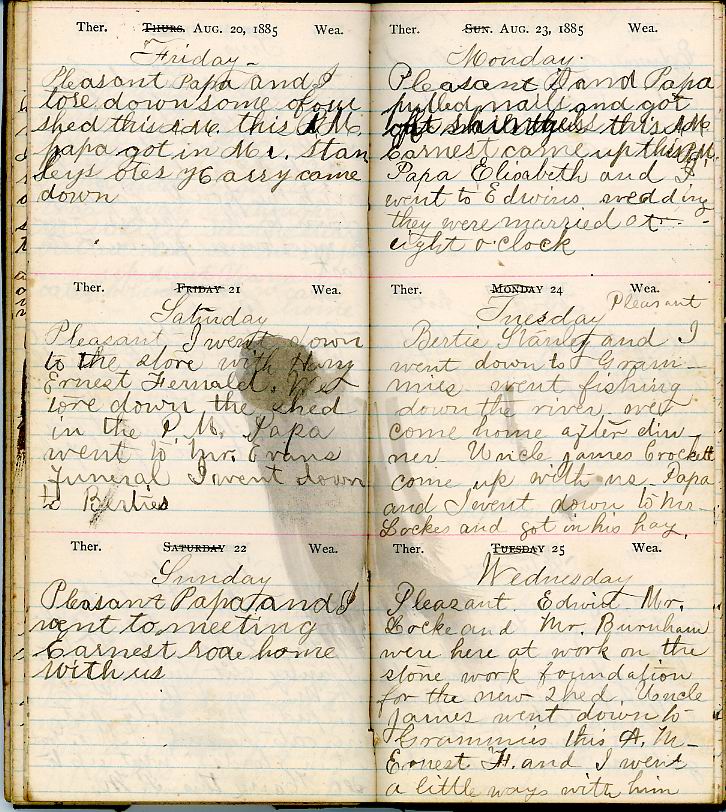 Ther. THURS. AUG. 20, 1885 Wea.
Friday
Pleasant Papa and I
tore down some of our
shed this A.M. this P.M.
papa got in Mr. Stan
leys otes Harry came
down
Ther. FRIDAY 21 Wea.
Saturday
Pleasant I went down
to the store with Harry
Ernest Fernald. We
tore down the shed
in the P.M. Papa
went to Mr. Evans
funeral I went down
to Berties
Ther. SATURDAY 22 Wea.
Sunday
Pleasant Papa and I
went to meeting
Earnest rode home
with us
Ther. SUN. AUG. 23, 1885 Wea.
Monday.
Pleasant I and Papa
pulled nails and got
off this A.M.
Earnest came up this P.M.
Papa Elisabeth and I
went to Edwins wedding
they were married at
eight o'clock
Ther. MONDAY 24 Wea.
Pleasant
Tuesday
Bertie Stanley and I
went down to Gram-
mies went fishing
down the river we
come home after din
ner Uncle james Crockett
come up with us. Papa
and I went down to Mr.
Lockes and got in his hay.
Ther. TUESDAY 25 Wea.
Wednesday
Pleazant. Edwin Mr.
Locke and Mr. Burnham
were here at work on the
stone work foundation
for the new shed. Uncle
James went down to
Grammies this A.M.
Ernest F. and I went
a little ways with him